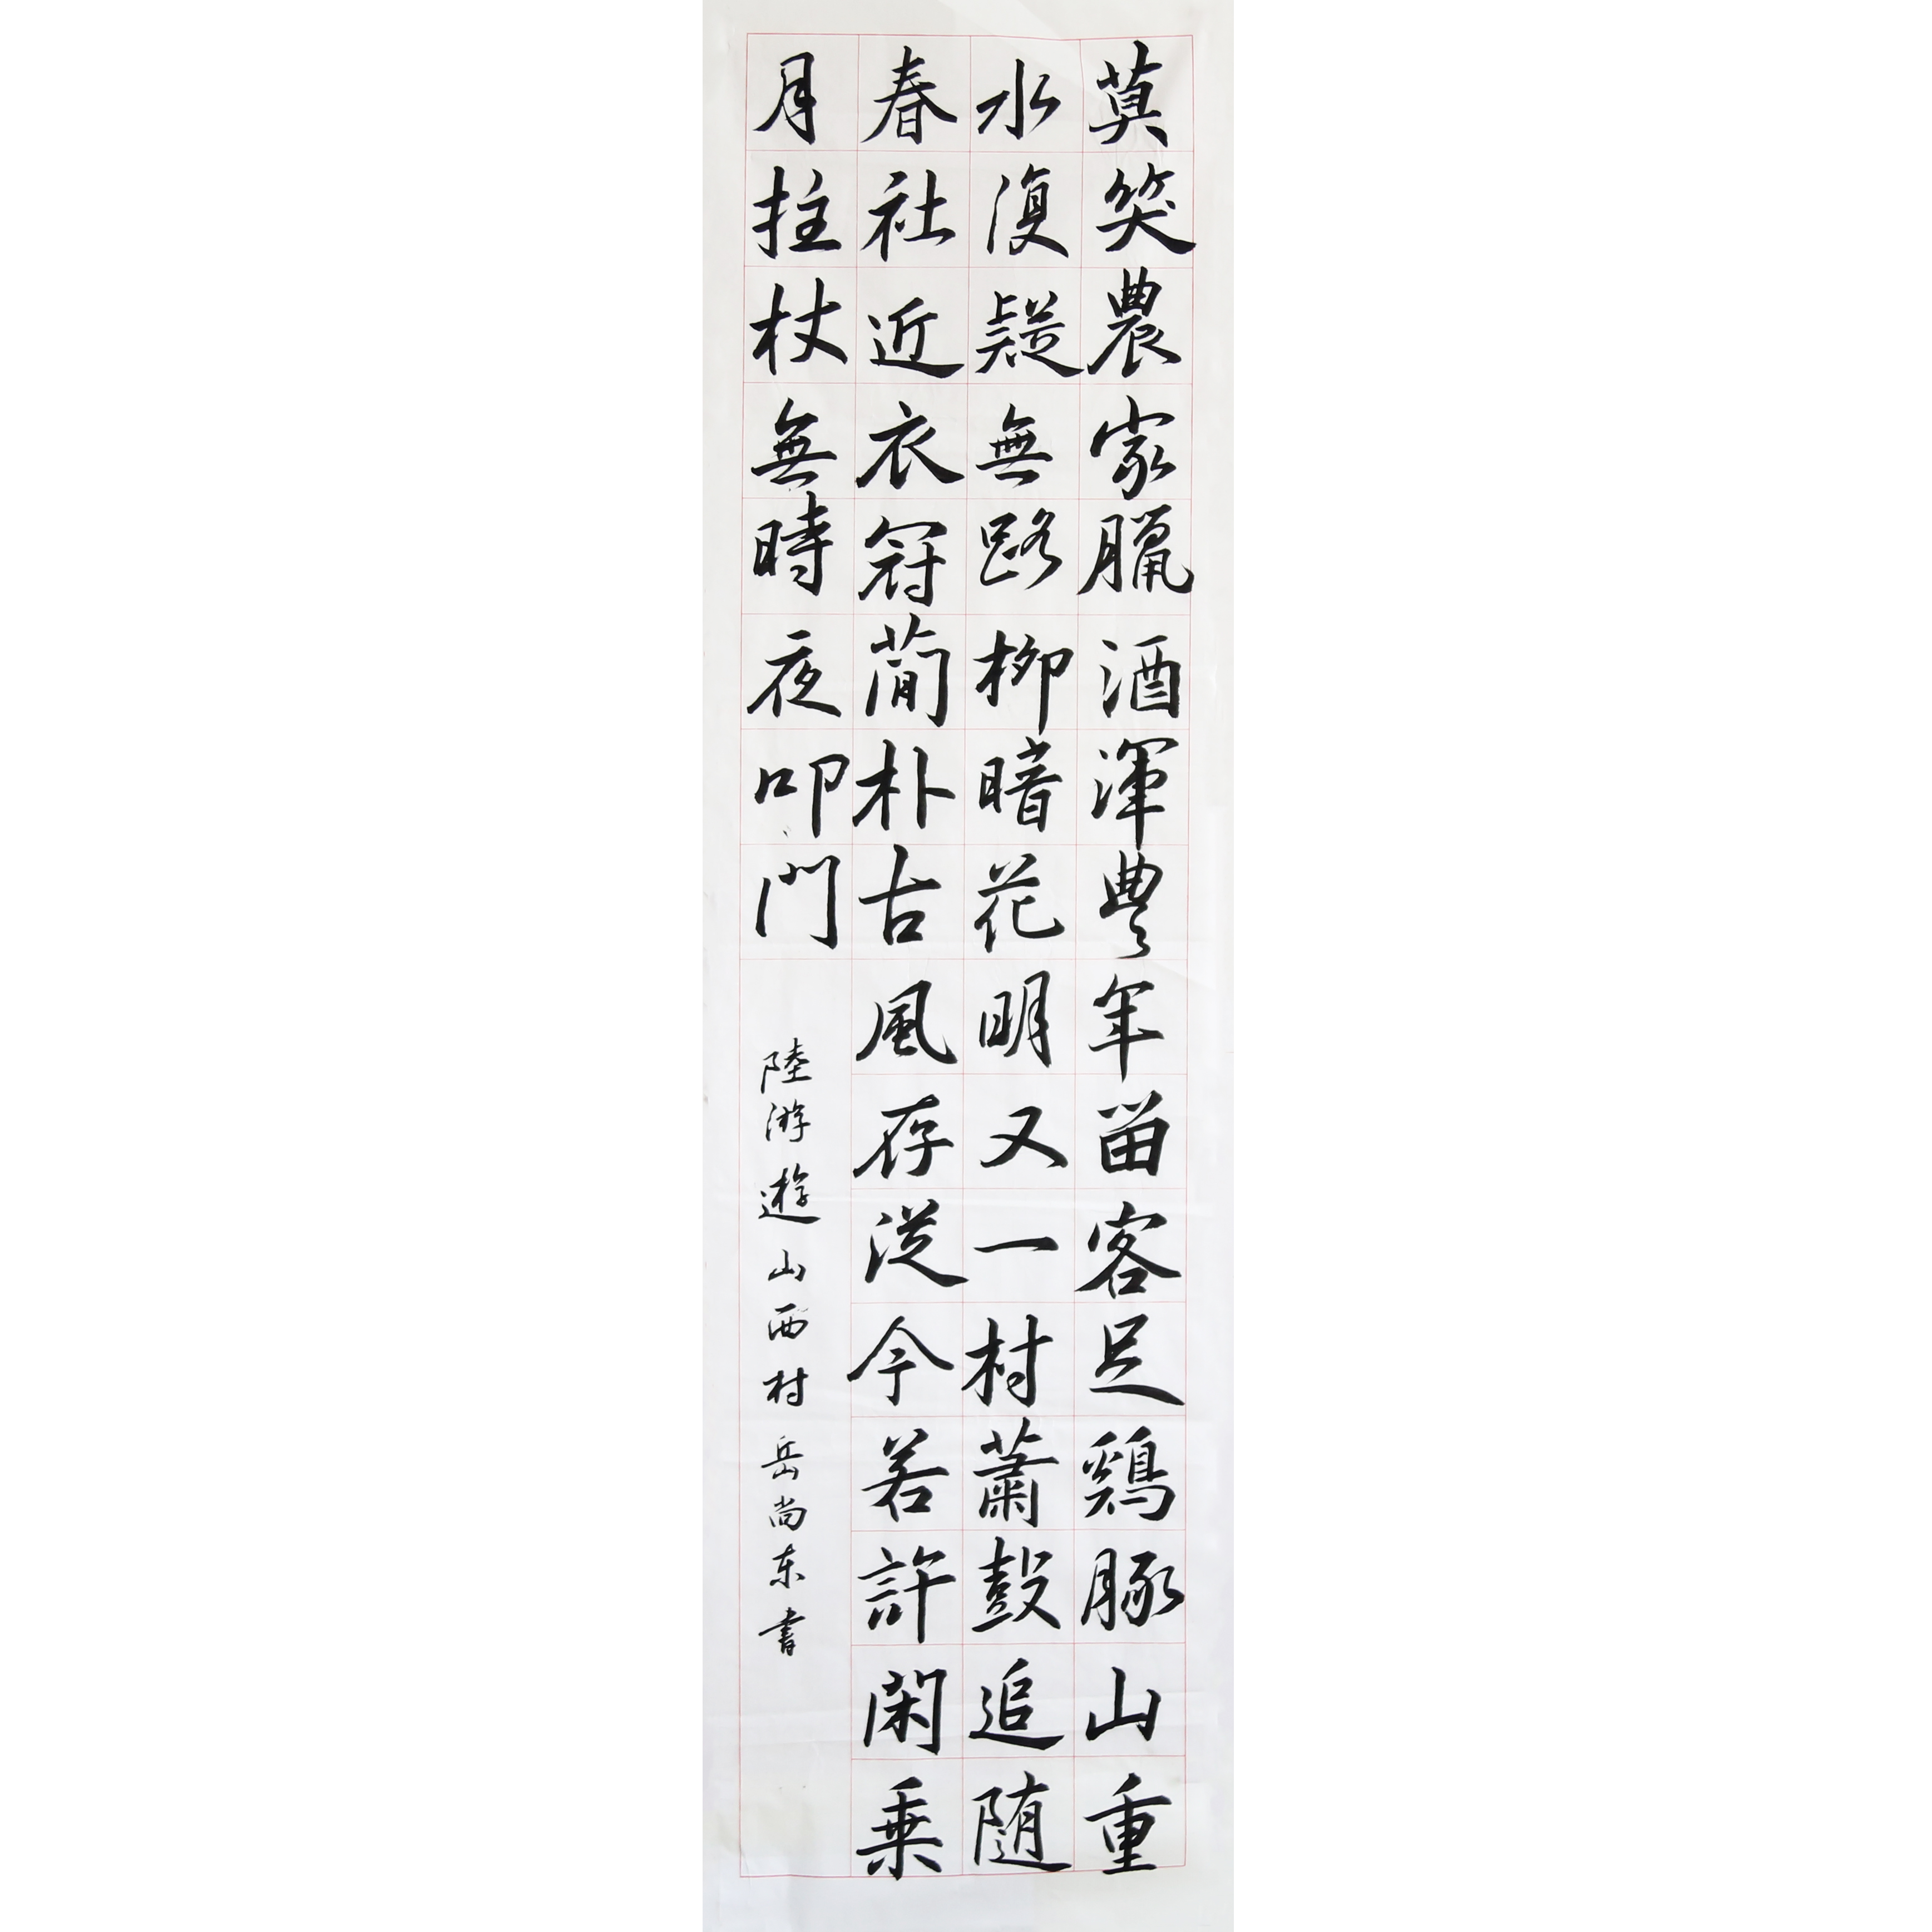 莫笑農家臘酒渾豐年留客足鷄豚山重
水復疑無路柳暗花明又一村蕭鼓追随
春社近衣冠蕳朴古風存従今若許閑乗
月拄杖無時夜叩門
陸游遊山西村岳尚东書